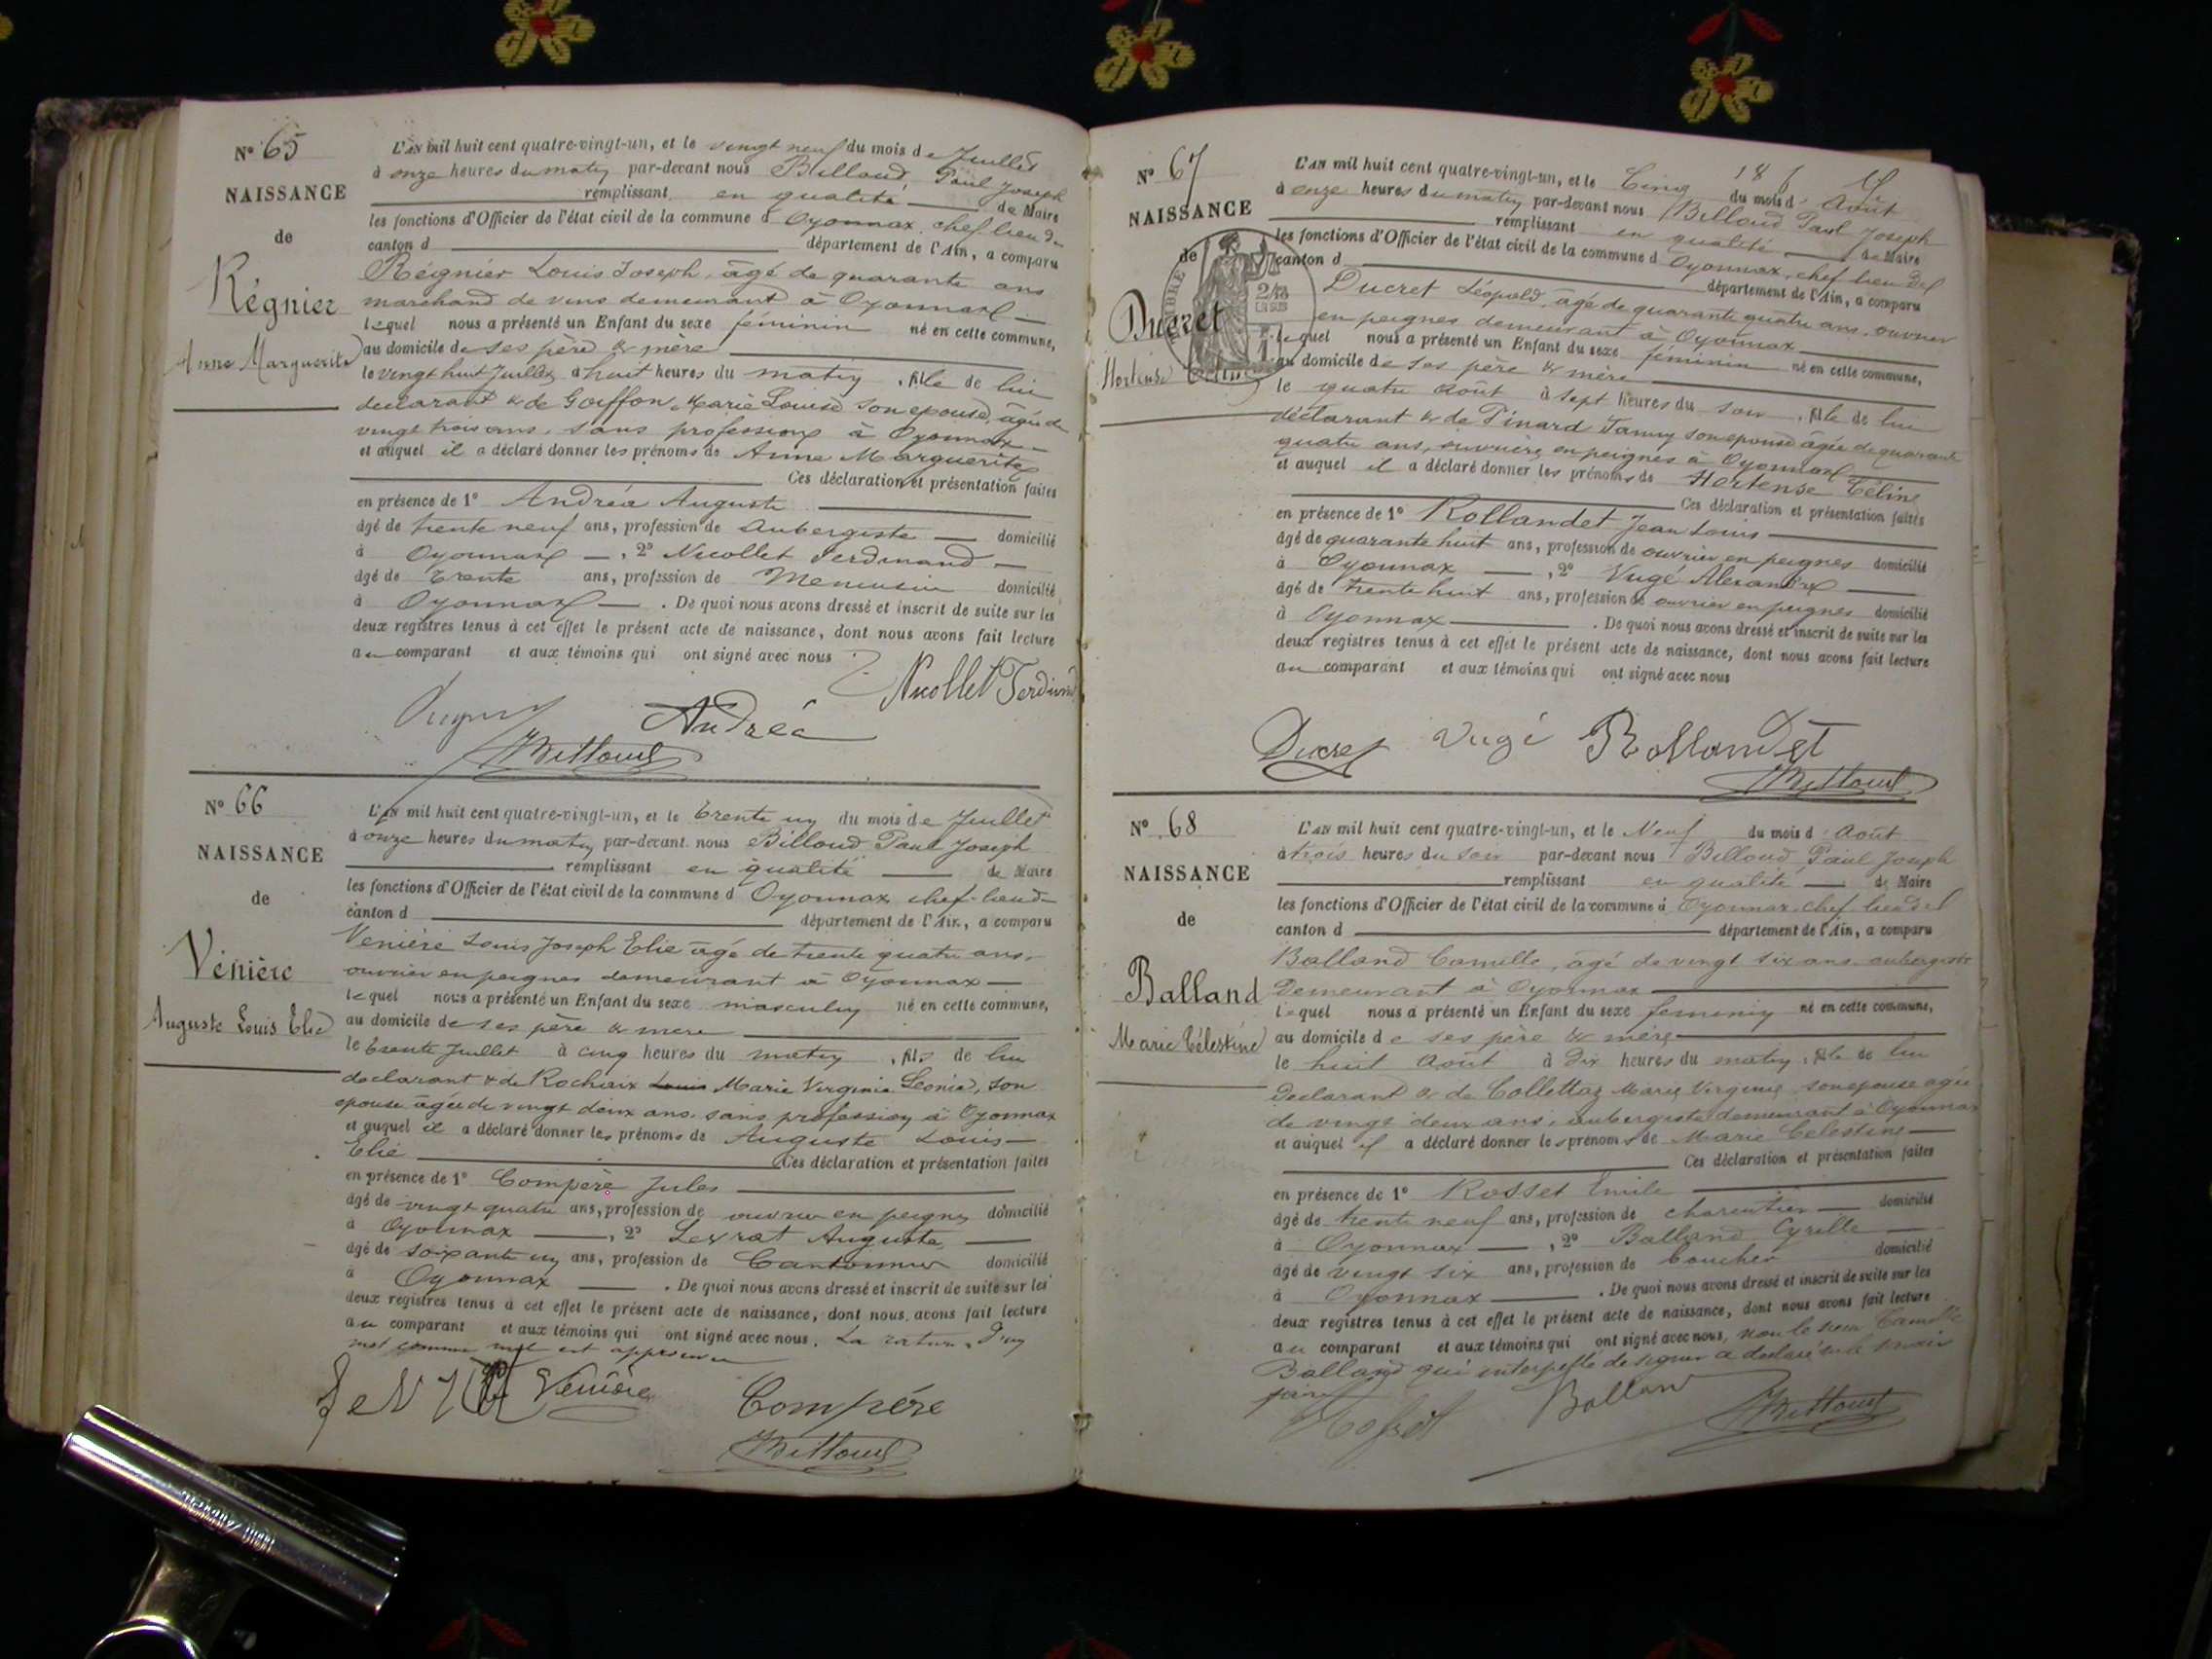 N° 65
NAISSANCE
de
Régnier
Anne Marguerite
L'AN mil huit cent quatre-vingt-un, et le vingt neuf du mois de Juillet
à onze heures du matin par-devant nous Billoud Paul Joseph
remplissant en qualité de Maire
les fonctions d'Officier de l'état civil de la commune d Oyonnax, chef lieu de
canton d département de l'Ain, a comparu
Régnier Louis Joseph, âgé de quarante ans
marchand de vins demeurant à Oyonnax
lequel nous a présenté un Enfant du sexe féminin né en cette commune,
au domicile de ses père & mère
le vingt huit Juillet à huit heures du matin, fille de lui
déclarant & de Goiffon Marie Louise son épouse, âgée de
vingt trois ans, sans profession à Oyonnax
et auquel il a déclaré donner les prénoms de Anne Marguerite
Ces déclaration et présentation faites
en présence de 1° Andréa Auguste
âgé de trente neuf ans, profession de aubergiste domicilié
à Oyonnax, 2° Nicollet Ferdinand
âgé de trente ans, profession de Menuisier domicilié
à Oyonnax. De quoi nous avons dressé et inscrit de suite sur les
deux registres tenus à cet effet le présent acte de naissance, dont nous avons fait lecture
au comparant et aux témoins qui ont signé avec nous
Nicollet Ferdinand
Andréa
Billoud
N° 66
NAISSANCE
de
Vénière
Auguste Louis Elie
L'AN mil huit cent quatre-vingt-un, et le trente un du mois de Juillet
à onze heures du matin par-devant nous Billoud Paul Joseph
remplissant en qualité de Maire
les fonctions d'Officier de l'état civil de la commune d Oyonnax, chef-lieu de
canton d département de l'Ain, a comparu
Venière Louis Joseph Elie âgé de trente quatre ans,
ouvrier en peignes demeurant à Oyonnax
lequel nous a présenté un Enfant du sexe masculin né en cette commune,
au domicile de ses père & mère
le trente Juillet à cinq heures du matin, fils de lui
déclarant & de Rochaix Louis Marie Virginie Léonie, son
épouse âgée de vingt deux ans, sans profession à Oyonnax
et auquel il a déclaré donner les prénoms de Auguste Louis
Elie Ces déclaration et présentation faites
en présence de 1° Compère Jules
âgé de vingt quatre ans, profession de ouvrier en peignes domicilié
à Oyonnax, 2° Levrat Auguste
âgé de soixante un ans, profession de Cantonnier domicilié
à Oyonnax. De quoi nous avons dressé et inscrit de suite sur les
deux registres tenus à cet effet le présent acte de naissance, dont nous avons fait lecture
au comparant et aux témoins qui ont signé avec nous. La rature d'un
mot comme nul est approuvée
Vénière Compère
Billoud
N° 67
NAISSANCE
de
Ducret
Hortense Céline
L'AN mil huit cent quatre-vingt-un, et le Cinq du mois d'Août
à onze heures du matin par-devant nous Billoud Paul Joseph
remplissant en qualité de Maire
les fonctions d'Officier de l'état civil de la commune d Oyonnax, chef lieu de
canton d département de l'Ain, a comparu
Ducret Léopold, âgé de quarante quatre ans, ouvrier
en peignes demeurant à Oyonnax
lequel nous a présenté un Enfant du sexe féminin né en cette commune,
au domicile de ses père & mère
le quatre Août à sept heures du soir, fille de lui
déclarant & de Pinard Fanny son épouse âgée de quarante
quatre ans, ouvrière en peignes à Oyonnax
et auquel il a déclaré donner les prénoms de Hortense Céline
Ces déclaration et présentation faites
en présence de 1° Rollandet Jean Louis
âgé de quarante huit ans, profession de ouvrier en peignes domicilié
à Oyonnax, 2° Vugé Alexandre
âgé de trente huit ans, profession de ouvrier en peignes domicilié
à Oyonnax. De quoi nous avons dressé et inscrit de suite sur les
deux registres tenus à cet effet le présent acte de naissance, dont nous avons fait lecture
au comparant et aux témoins qui ont signé avec nous
Ducret Vugé Rollandet
Billoud
N° 68
NAISSANCE
de
Balland
Marie Célestine
L'AN mil huit cent quatre-vingt-un, et le Neuf du mois d'Août
à trois heures du soir par-devant nous Billoud Paul Joseph
remplissant en qualité de Maire
les fonctions d'Officier de l'état civil de la commune d Oyonnax, chef lieu de
canton d département de l'Ain, a comparu
Balland Camille, âgé de vingt six ans, aubergiste
demeurant à Oyonnax
lequel nous a présenté un Enfant du sexe féminin né en cette commune,
au domicile de ses père & mère
le huit Août à dix heures du matin, fille de lui
déclarant & de Collettaz Marie Virginie son épouse âgée
de vingt deux ans, aubergiste demeurant à Oyonnax
et auquel il a déclaré donner les prénoms de Marie Célestine
Ces déclaration et présentation faites
en présence de 1° Rosset Emile
âgé de trente neuf ans, profession de charcutier domicilié
à Oyonnax, 2° Balland Cyrille
âgé de vingt six ans, profession de boucher domicilié
à Oyonnax. De quoi nous avons dressé et inscrit de suite sur les
deux registres tenus à cet effet le présent acte de naissance, dont nous avons fait lecture
au comparant et aux témoins qui ont signé avec nous, non le sieur Camille
Balland qui interpellé de signer a déclaré ne le savoir
faire
Rosset Balland Billoud